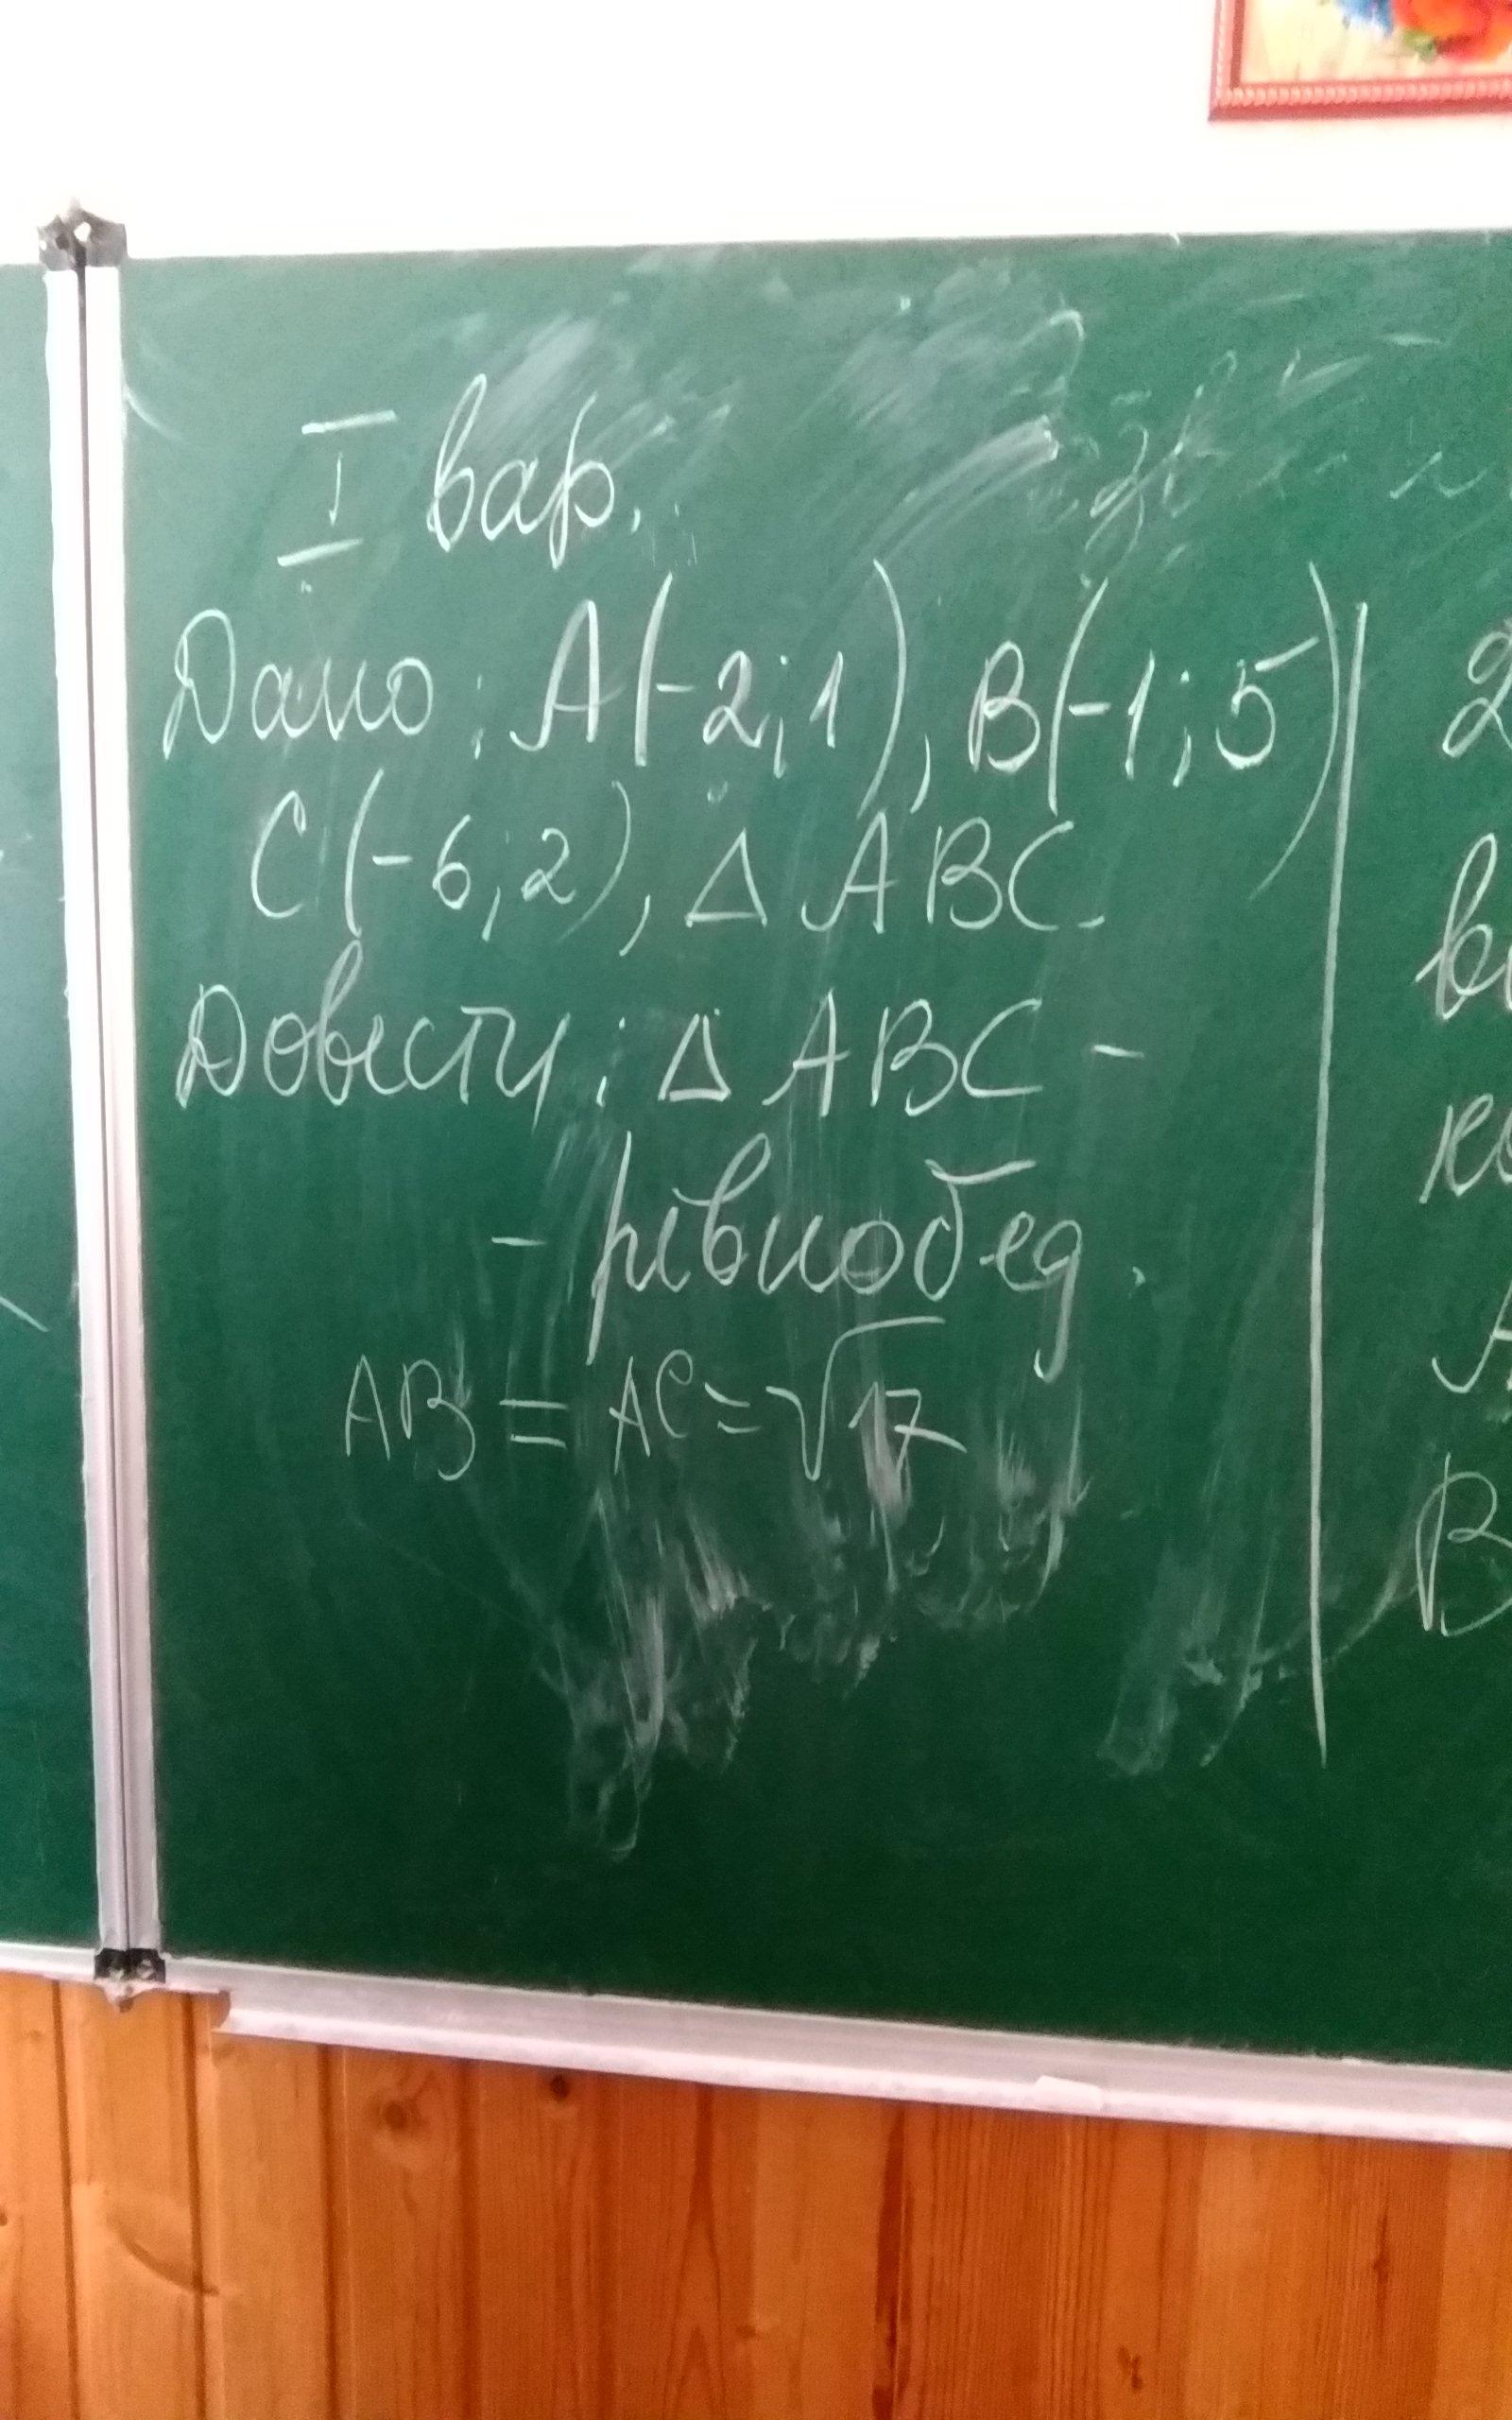 I вар.
Дано: A(-2;1), B(-1;5)
C(-6;2), △ ABC.
Довести: △ ABC -
- рівнобед.
AB = AC = √17